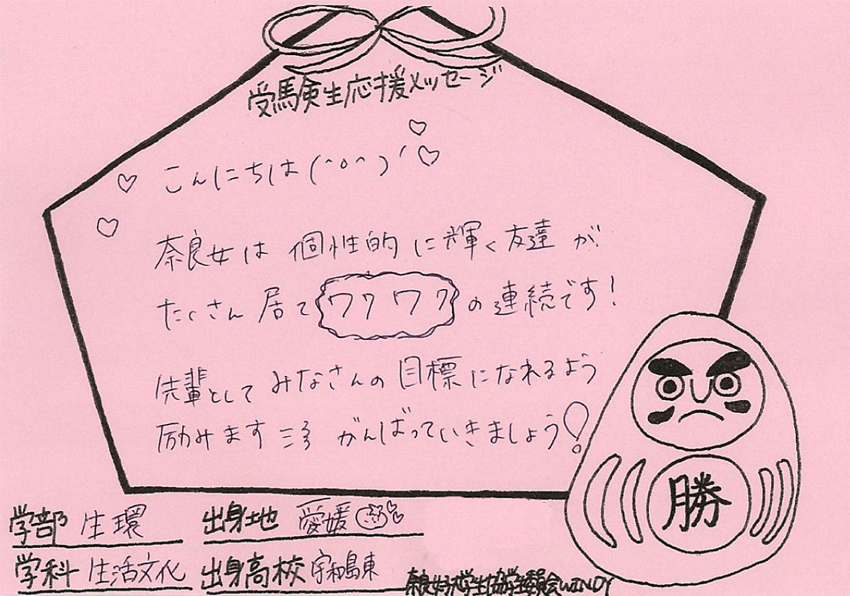 受験生応援メッセージ
こんにちは(^o^)´
奈良女は 個性的に輝く友達が
たくさん居てワクワクの連続です!
先輩としてみなさんの目標になれるよう
励みます ミ3 がんばっていきましょう!
勝
学部 生環 出身地 愛媛
学科 生活文化 出身高校 宇和島東
奈良女子大学生協学生委員会WINDY